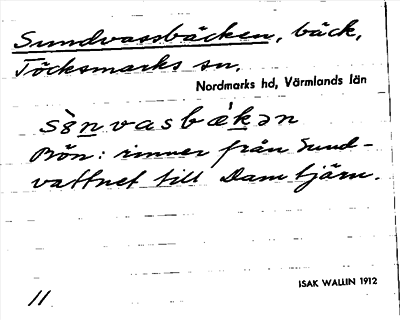 Sundvassbäcken, bäck,
Töcksmarks sn.
Nordmarks hd, Värmlands län
sènvasbǽkən
Bön: rinner från Sund-
vattnet till Damtjärn.
ISAK WALLIN 1912
11